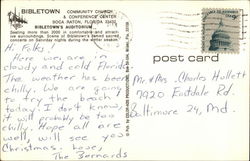 BIBLETOWN COMMUNITY CHURCH
& CONFERENCE CENTER
BOCA RATON, FLORIDA 33432
BIBLETOWN'S AUDITORIUM
Seating more than 2000 in comfortable and attractive surroundings. Scene of Bibletown's famed sacred concerts on Saturday nights during the winter season.
post card
Hi Folks,
Here we are in
cloudy and cold Florida.
The weather has been
chilly. We are going
to try the beach
today. I don't know,
it will probably be too
chilly. Hope all are
well, will see you
Christmas. Love,
The Bernards
Mr. & Mrs. Charles Hallett
7920 Eastdale Rd.
Baltimore 24, Md.